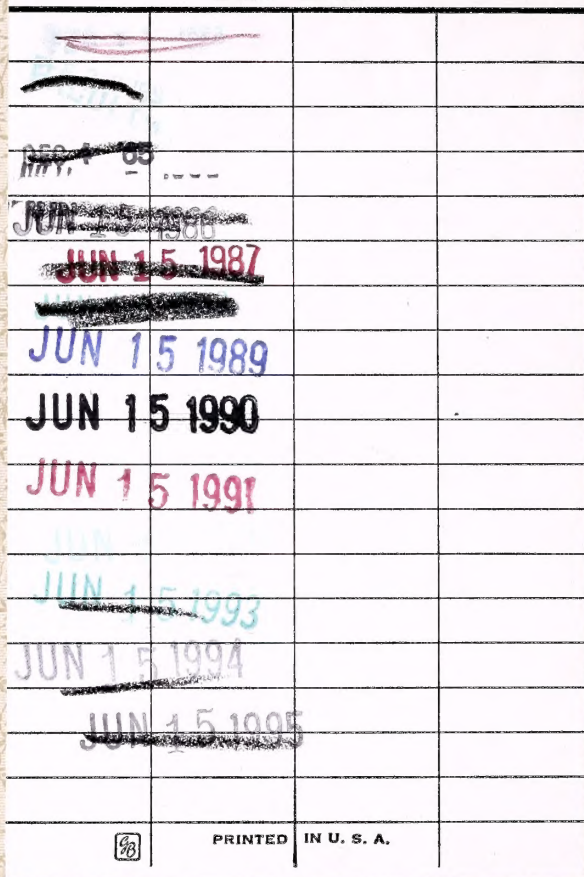 DEC 4 '85
JUN 15 1986
JUN 15 1987
JUN 15 1989
JUN 15 1990
JUN 15 1991
JUN
JUN 15 1993
JUN 15 1994
JUN 15 1995
GB PRINTED IN U. S. A.